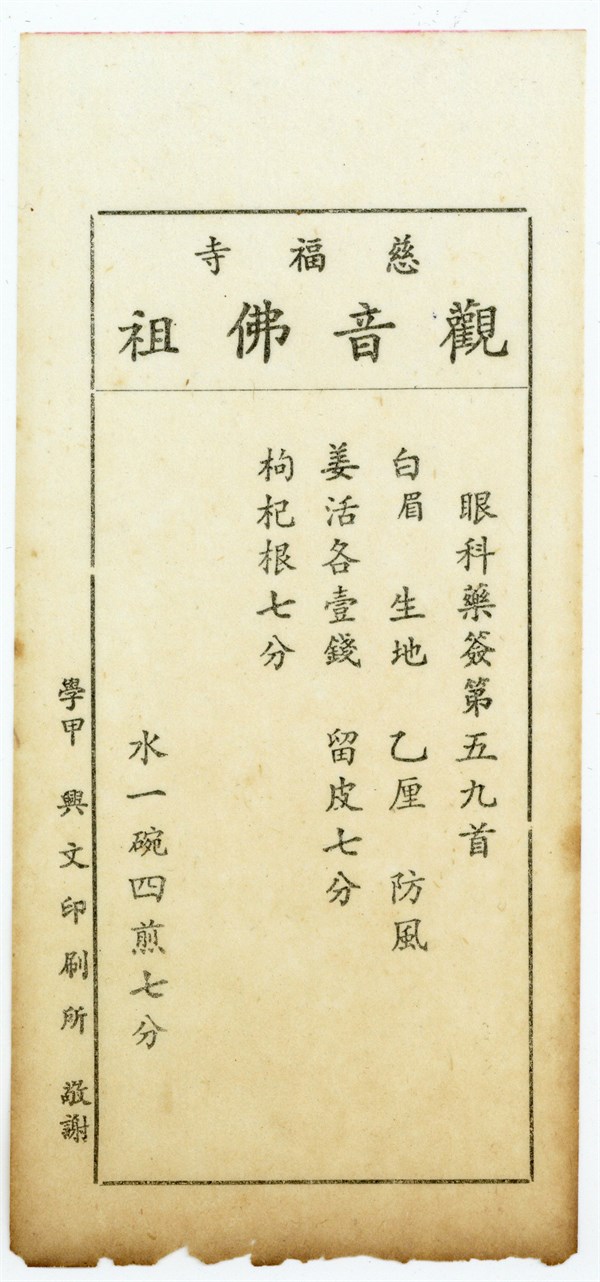 慈福寺
觀音佛祖
眼科藥簽第五九首
白眉 生地 乙厘 防風
姜活各壹錢 留皮七分
枸杞根七分
水一碗四煎七分
學甲 興文印刷所 敬謝